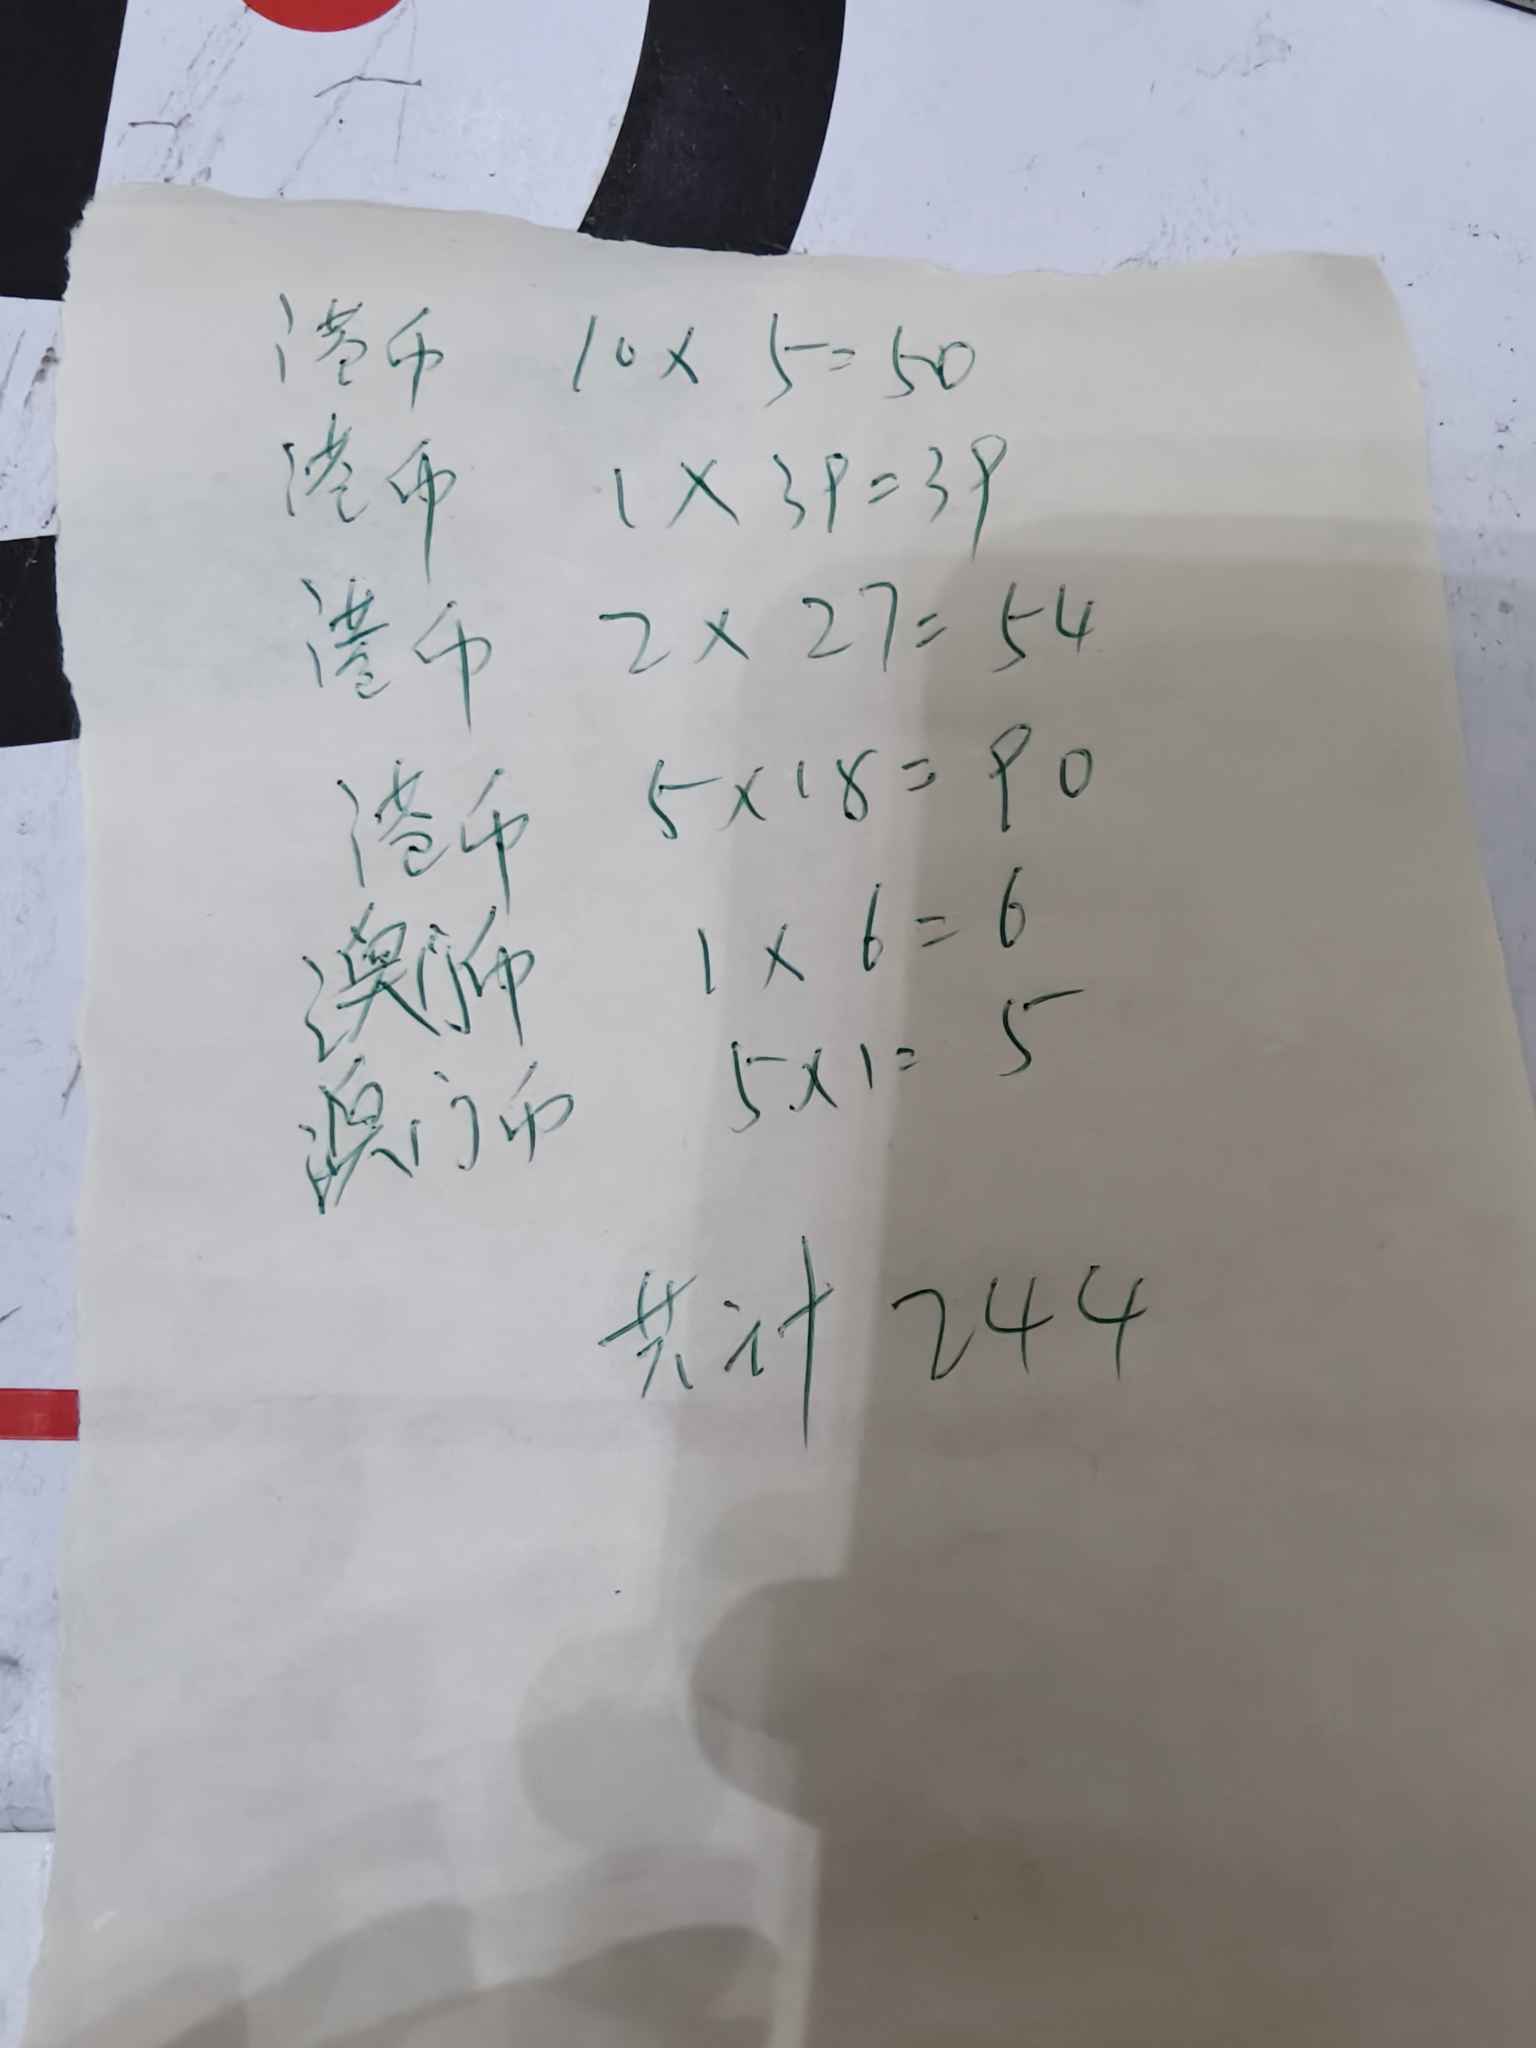 港币 10×5=50
港币 1×39=39
港币 2×27=54
港币 5×18=90
澳门币 1×6=6
澳门币 5×1=5
共计 244